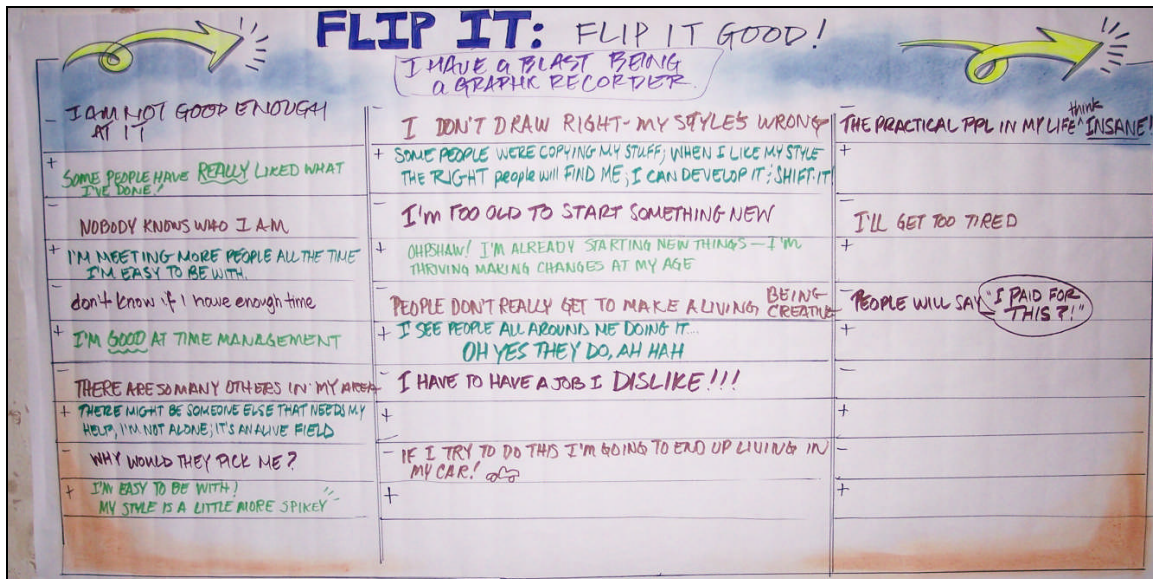 FLIP IT: FLIP IT GOOD!
I HAVE A BLAST BEING
A GRAPHIC RECORDER
- I AM NOT GOOD ENOUGH
AT IT
+ SOME PEOPLE HAVE REALLY LIKED WHAT
I'VE DONE!
- NOBODY KNOWS WHO I AM
+ I'M MEETING MORE PEOPLE ALL THE TIME
I'M EASY TO BE WITH.
- don't know if I have enough time
+ I'M GOOD AT TIME MANAGEMENT
- THERE ARE SO MANY OTHERS IN MY AREA
+ THERE MIGHT BE SOMEONE ELSE THAT NEEDS MY
HELP, I'M NOT ALONE; IT'S AN ALIVE FIELD
- WHY WOULD THEY PICK ME?
+ I'M EASY TO BE WITH!
MY STYLE IS A LITTLE MORE SPIKEY
- I DON'T DRAW RIGHT - MY STYLE'S WRONG
+ SOME PEOPLE WERE COPYING MY STUFF; WHEN I LIKE MY STYLE
THE RIGHT people will FIND ME; I CAN DEVELOP IT; SHIFT IT!
- I'm TOO OLD TO START SOMETHING NEW
+ OHPSHAW! I'M ALREADY STARTING NEW THINGS — I'M
THRIVING MAKING CHANGES AT MY AGE
- PEOPLE DON'T REALLY GET TO MAKE A LIVING BEING
CREATIVE
+ I SEE PEOPLE ALL AROUND ME DOING IT...
OH YES THEY DO, AH HAH
- I HAVE TO HAVE A JOB I DISLIKE!!!
+
- IF I TRY TO DO THIS I'M GOING TO END UP LIVING IN
MY CAR!
+
- THE PRACTICAL PPL IN MY LIFE ^think INSANE!
+
- I'LL GET TOO TIRED
+
- PEOPLE WILL SAY "I PAID FOR
THIS?!"
+
-
+
-
+